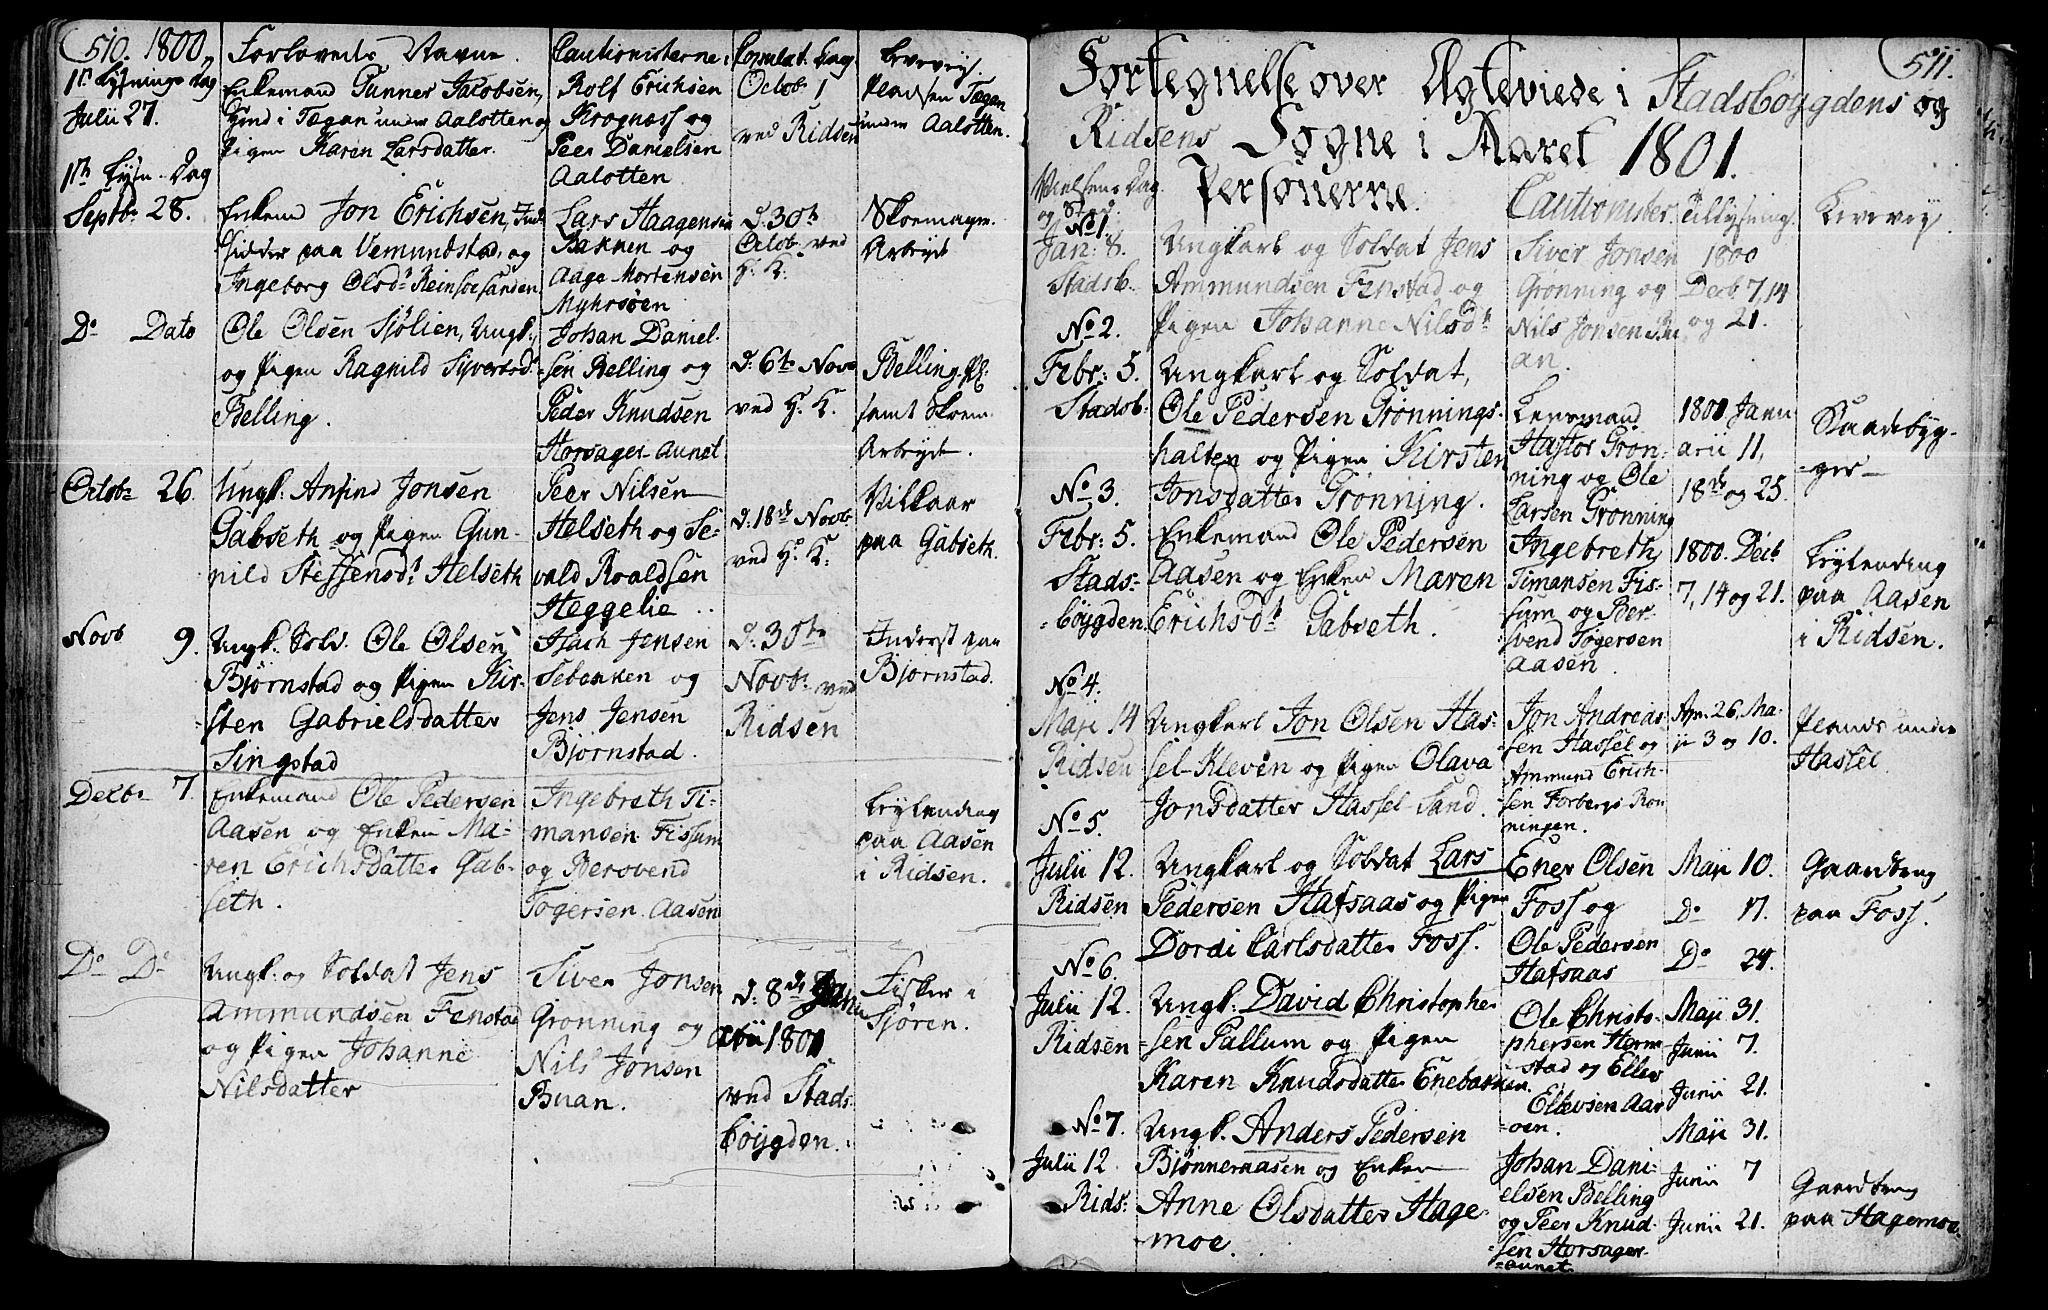 510. 1800.
Forlovedes Navne.
Cautionisterne.
Copulat. Dag
Levevej.
1ste Lysnings Dag
Julii 27.
Enkemand Gunner Jacobsen,
Ind i Tægan under Aalotten og
Pigen Karen Larsdatter.
Rolf Erichsen
Krognæss og
Peer Danielsen
Aalotten
Octob 1
ved Ridsen
Pladsen Tægan
under Aalotten.
1ste Lysn. Dag
Septbr 28.
Enkem Jon Erichsen, Ind-
sidder paa Vemundstad, og
Ingeborg Olsdr Reinsoesanden
Lars Haagensen
Bakken og
Aage Mortensen
Myhrsöen
d: 30te
Octobr ved
H: K:
Skoemager
Arbejde
Do Dato
Ole Olsen Sjølien, Ungk.,
og Pigen Ragnild Siversdr
Belling.
Johan Daniel-
sen Belling og
Peder Knudsen
Horsager-Aunet
d: 6te Novr
ved H. K.
Belling Pl.
samt Skoem.
Arbejde.
Octobr 26.
Ungk: Ansind Jonsen
Gabseth og Pigen Gun-
nild Steffensdr Helseth
Peer Nilsen
Helseth og Se-
vald Roaldsen
Heggelie
d. 18de Novbr
ved H. K:
Vilkaar
paa Gabseth.
Novb 9.
Ungk. Sold. Ole Olsen
Bjørnstad og Pigen Kir-
sten Gabrielsdatter
Singstad
Isach Jensen
Sebakken og
Jens Jensen
Bjørnstad.
d: 30te
Novbr ved
Ridsen
Inderst paa
Bjørnstad.
Decbr 7.
Enkemand Ole Pedersen
Aasen og Enken Ma-
ren Erichsdatter Gab-
seth.
Ingebreth Ti-
mansen Fissum
og Berovend
Togersen Aasen
Leylending
paa Aasen
i Ridsen.
Do Do
Ungk: og Soldat Jens
Ammundsen Fenstad
og Pigen Johanne
Nilsdatter
Siver Jonsen
Gronning og
Nils Jonsen
Buan.
d: 8de Janu
arii 1801
ved Stads-
böygden.
Fisker i
Sjøren.
511.
Fortegnelse over Ægteviede i Stadsböygdens og
Ridsens Sogne i Aaret 1801.
Vielsens Dag
og Sted.
Personerne
Cautionister.
Tillysning.
Levevej
No 1.
Jan: 8.
Stadsb.
Ungkarl og Soldat Jens
Ammundsen Fenstad og
Pigen Johanne Nilsdr
Siver Jonsen
Grønning og
Nils Jonsen Bu
an.
1800
Decb 7, 14
og 21.
No 2.
Febr: 5.
Stadsb:
Ungkarl og Soldat,
Ole Pedersen Grønnings-
halten og Pigen Kirsten
Jonsdatter Grønning.
Lensmand
Hastor Grön-
ning og Ole
Larsen Grønning
1801 Janu
arii 11,
18de og 25.
Raadebyg-
ger
No 3.
Febr: 5.
Stads-
böygden.
Enkemand Ole Pedersen
Aasen og Enken Maren
Erichsdr Gabseth.
Ingebreth
Timansen Fis-
sum og Ber-
vend Togersen
Aasen.
1800. Decb
7, 14 og 21.
Leylending
paa Aasen
i Ridsen.
No 4.
Maji 14
Ridsen
Ungkarl Jon Olsen Has-
sel-Kleven og Pigen Olava
Jonsdatter Hassel-Sand.
Jon Andreas-
sen Hassel og
Ammund Erich-
sen Forbergs Rön
ningen.
Apr. 26, Ma-
ji 3 og 10.
Plads under
Hassel.
No 5.
Julii 12.
Ridsen
Ungkarl og Soldat Lars
Pedersen Hafsaas og Pigen
Dordi Carlsdatter Foss.
Ener Olsen
Foss og
Ole Pedersen
Hafsaas
Maji 10.
Do 17.
Do 24.
Gaardbrug
paa Foss.
No 6.
Julii 12.
Ridsen
Ungk. David Christophe-
sen Pallum og Pigen
Karen Knudsdatter Enebakken
Ole Christo-
phersen Harm
stad og Ellev
Ellevsen Aar
oen.
Maji 31.
Junii 7.
Junii 21.
No 7.
Julii 12
Rids:
Ungk. Anders Pedersen
Bjønneraasen og Enken
Anne Olsdatter Hage-
moe.
Johan Dani-
elsen Belling
og Peer Knud-
sen Horsager
aunet
Maji 31.
Junii 7
Junii 21.
Gaardbrug
paa Hagemoe.